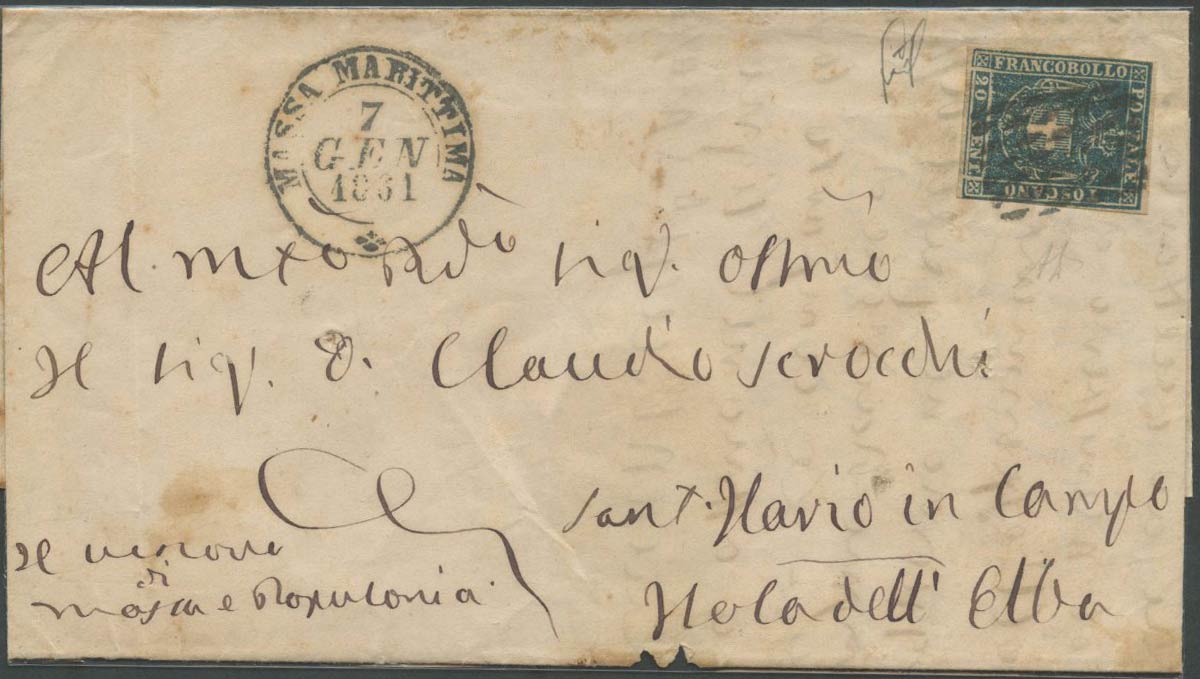 MASSA MARITTIMA
7
GEN
1861
FRANCOBOLLO
POSTALE
TOSCANO
20 CENT
Al. sig.
Il sig. D. Claudio Serocchi
Sant. Ilario in Campo
Isola dell' Elba
Il vescovo
di
Massa e Populonia